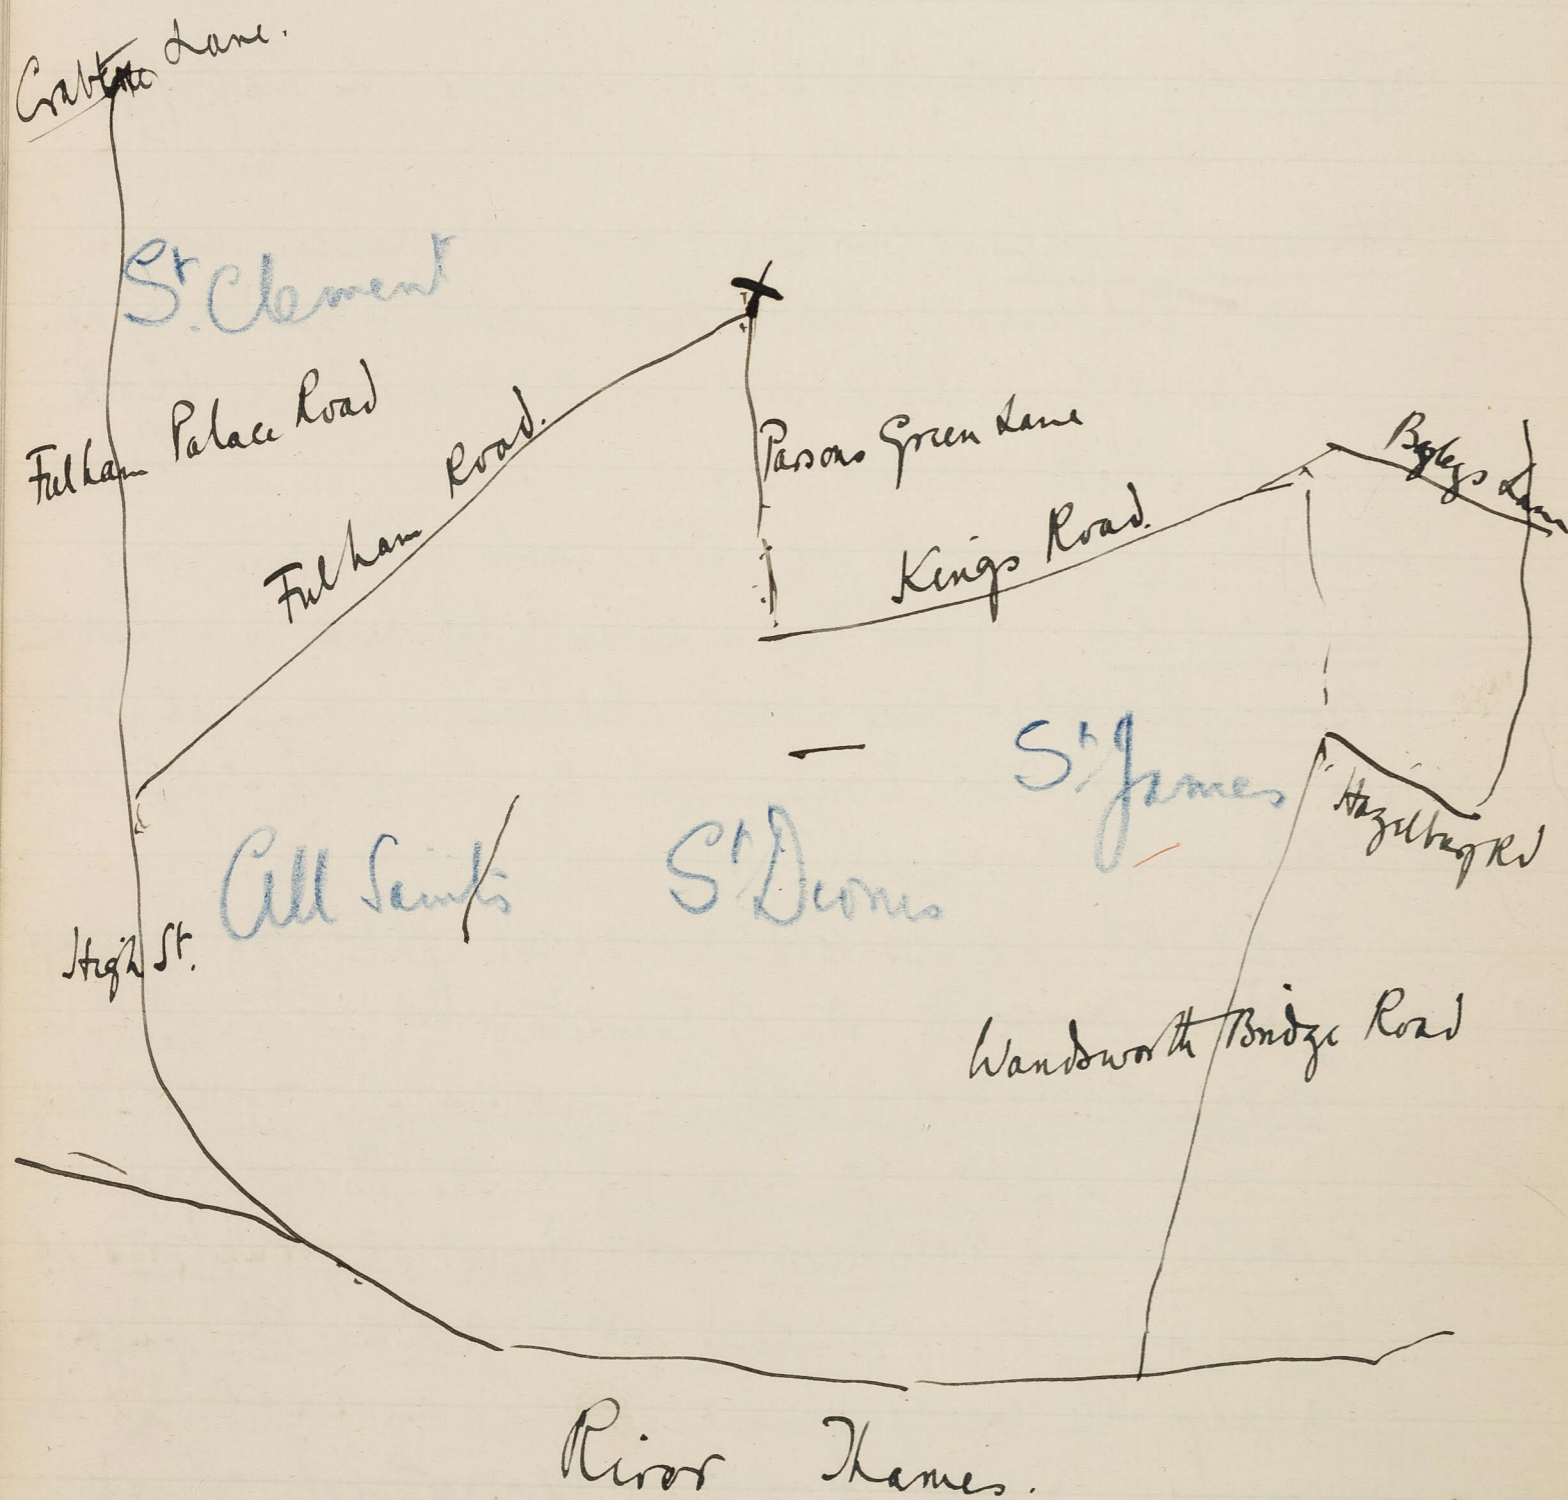 Crabtree Lane.
St. Clement
Fulham Palace Road
Fulham Road.
Parsons Green Lane
Kings Road.
Bagleys Lane
St. James
Hazelbury Rd
All Saints
St. Dionis
High St.
Wandsworth Bridge Road
River Thames.